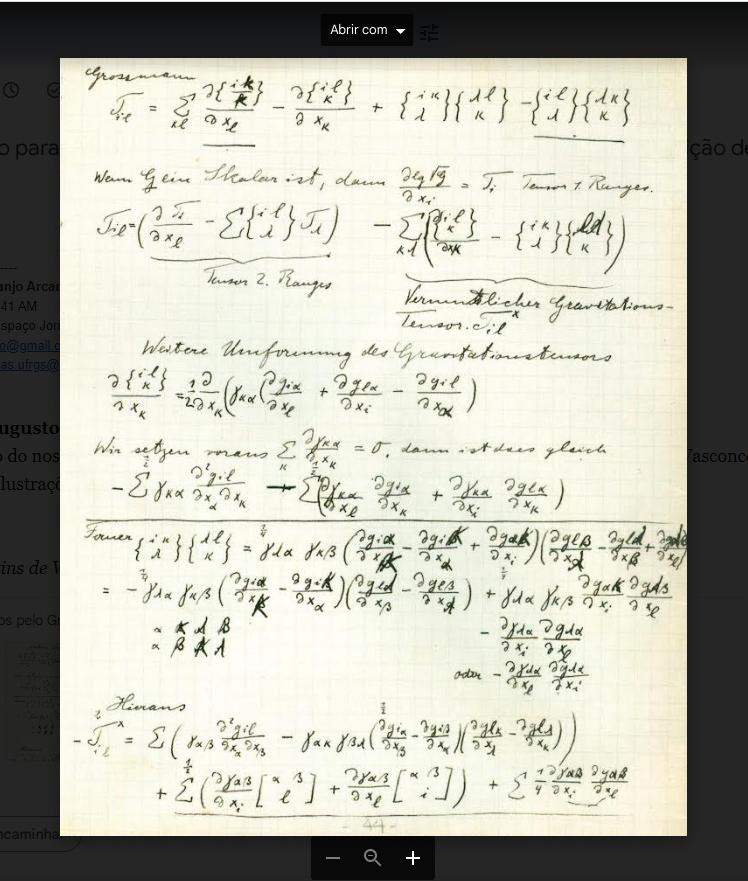 Abrir com
Grossmann
T_il = Σ_κl ∂{iκ κ}/∂x_l − ∂{il κ}/∂x_κ + {iκ λ}{λl κ} − {il λ}{λκ κ}
Wenn G ein Skalar ist, dann ∂lg√g/∂x_i = T_i Tensor 1. Ranges.
T_il = (∂T_i/∂x_l − Σ{il λ}T_λ) − Σ_κλ(∂{il κ}/∂x_κ − {iκ λ}{λl κ})
Tensor 2. Ranges
Vermutlicher Gravitations-
Tensor. T_il^x
Weitere Umformung des Gravitationstensors
∂{il κ}/∂x_κ = 1/2 ∂/∂x_κ(γ_κα(∂g_iα/∂x_l + ∂g_lα/∂x_i − ∂g_il/∂x_α)
Wir setzen voraus Σ_κ ∂γ_κα/∂x_κ = 0, dann ist dies gleich
− 1/2 Σ γ_κα ∂²g_il/∂x_α∂x_κ − 1/2 Σ(∂γ_κα/∂x_l ∂g_iα/∂x_κ + ∂γ_κα/∂x_i ∂g_lα/∂x_κ)
Ferner {iκ λ}{λl κ} = 1/4 γ_λα γ_κβ (∂g_iα/∂x_κ − ∂g_iκ/∂x_α + ∂g_ακ/∂x_i)(∂g_lβ/∂x_λ − ∂g_lλ/∂x_β + ∂g_λβ/∂x_l)
= − 1/4 γ_λα γ_κβ (∂g_iα/∂x_κ − ∂g_iκ/∂x_α)(∂g_lλ/∂x_β − ∂g_lβ/∂x_λ) + 1/4 γ_λα γ_κβ ∂g_ακ/∂x_i ∂g_λβ/∂x_l
α κ λ β
− ∂γ_λα/∂x_i ∂g_λα/∂x_l
α β κ λ
oder − ∂γ_λα/∂x_l ∂g_λα/∂x_i
Hieraus
− 2 T_il^x = Σ(γ_αβ ∂²g_il/∂x_α∂x_β − 1/2 γ_ακ γ_βλ (∂g_iα/∂x_β − ∂g_iβ/∂x_α)(∂g_lκ/∂x_λ − ∂g_lλ/∂x_κ))
+ 1/2 Σ(∂γ_αβ/∂x_i [αβ l] + ∂γ_αβ/∂x_l [αβ i]) + Σ 1/4 ∂γ_αβ/∂x_i ∂g_αβ/∂x_l
- 44 -
41 AM